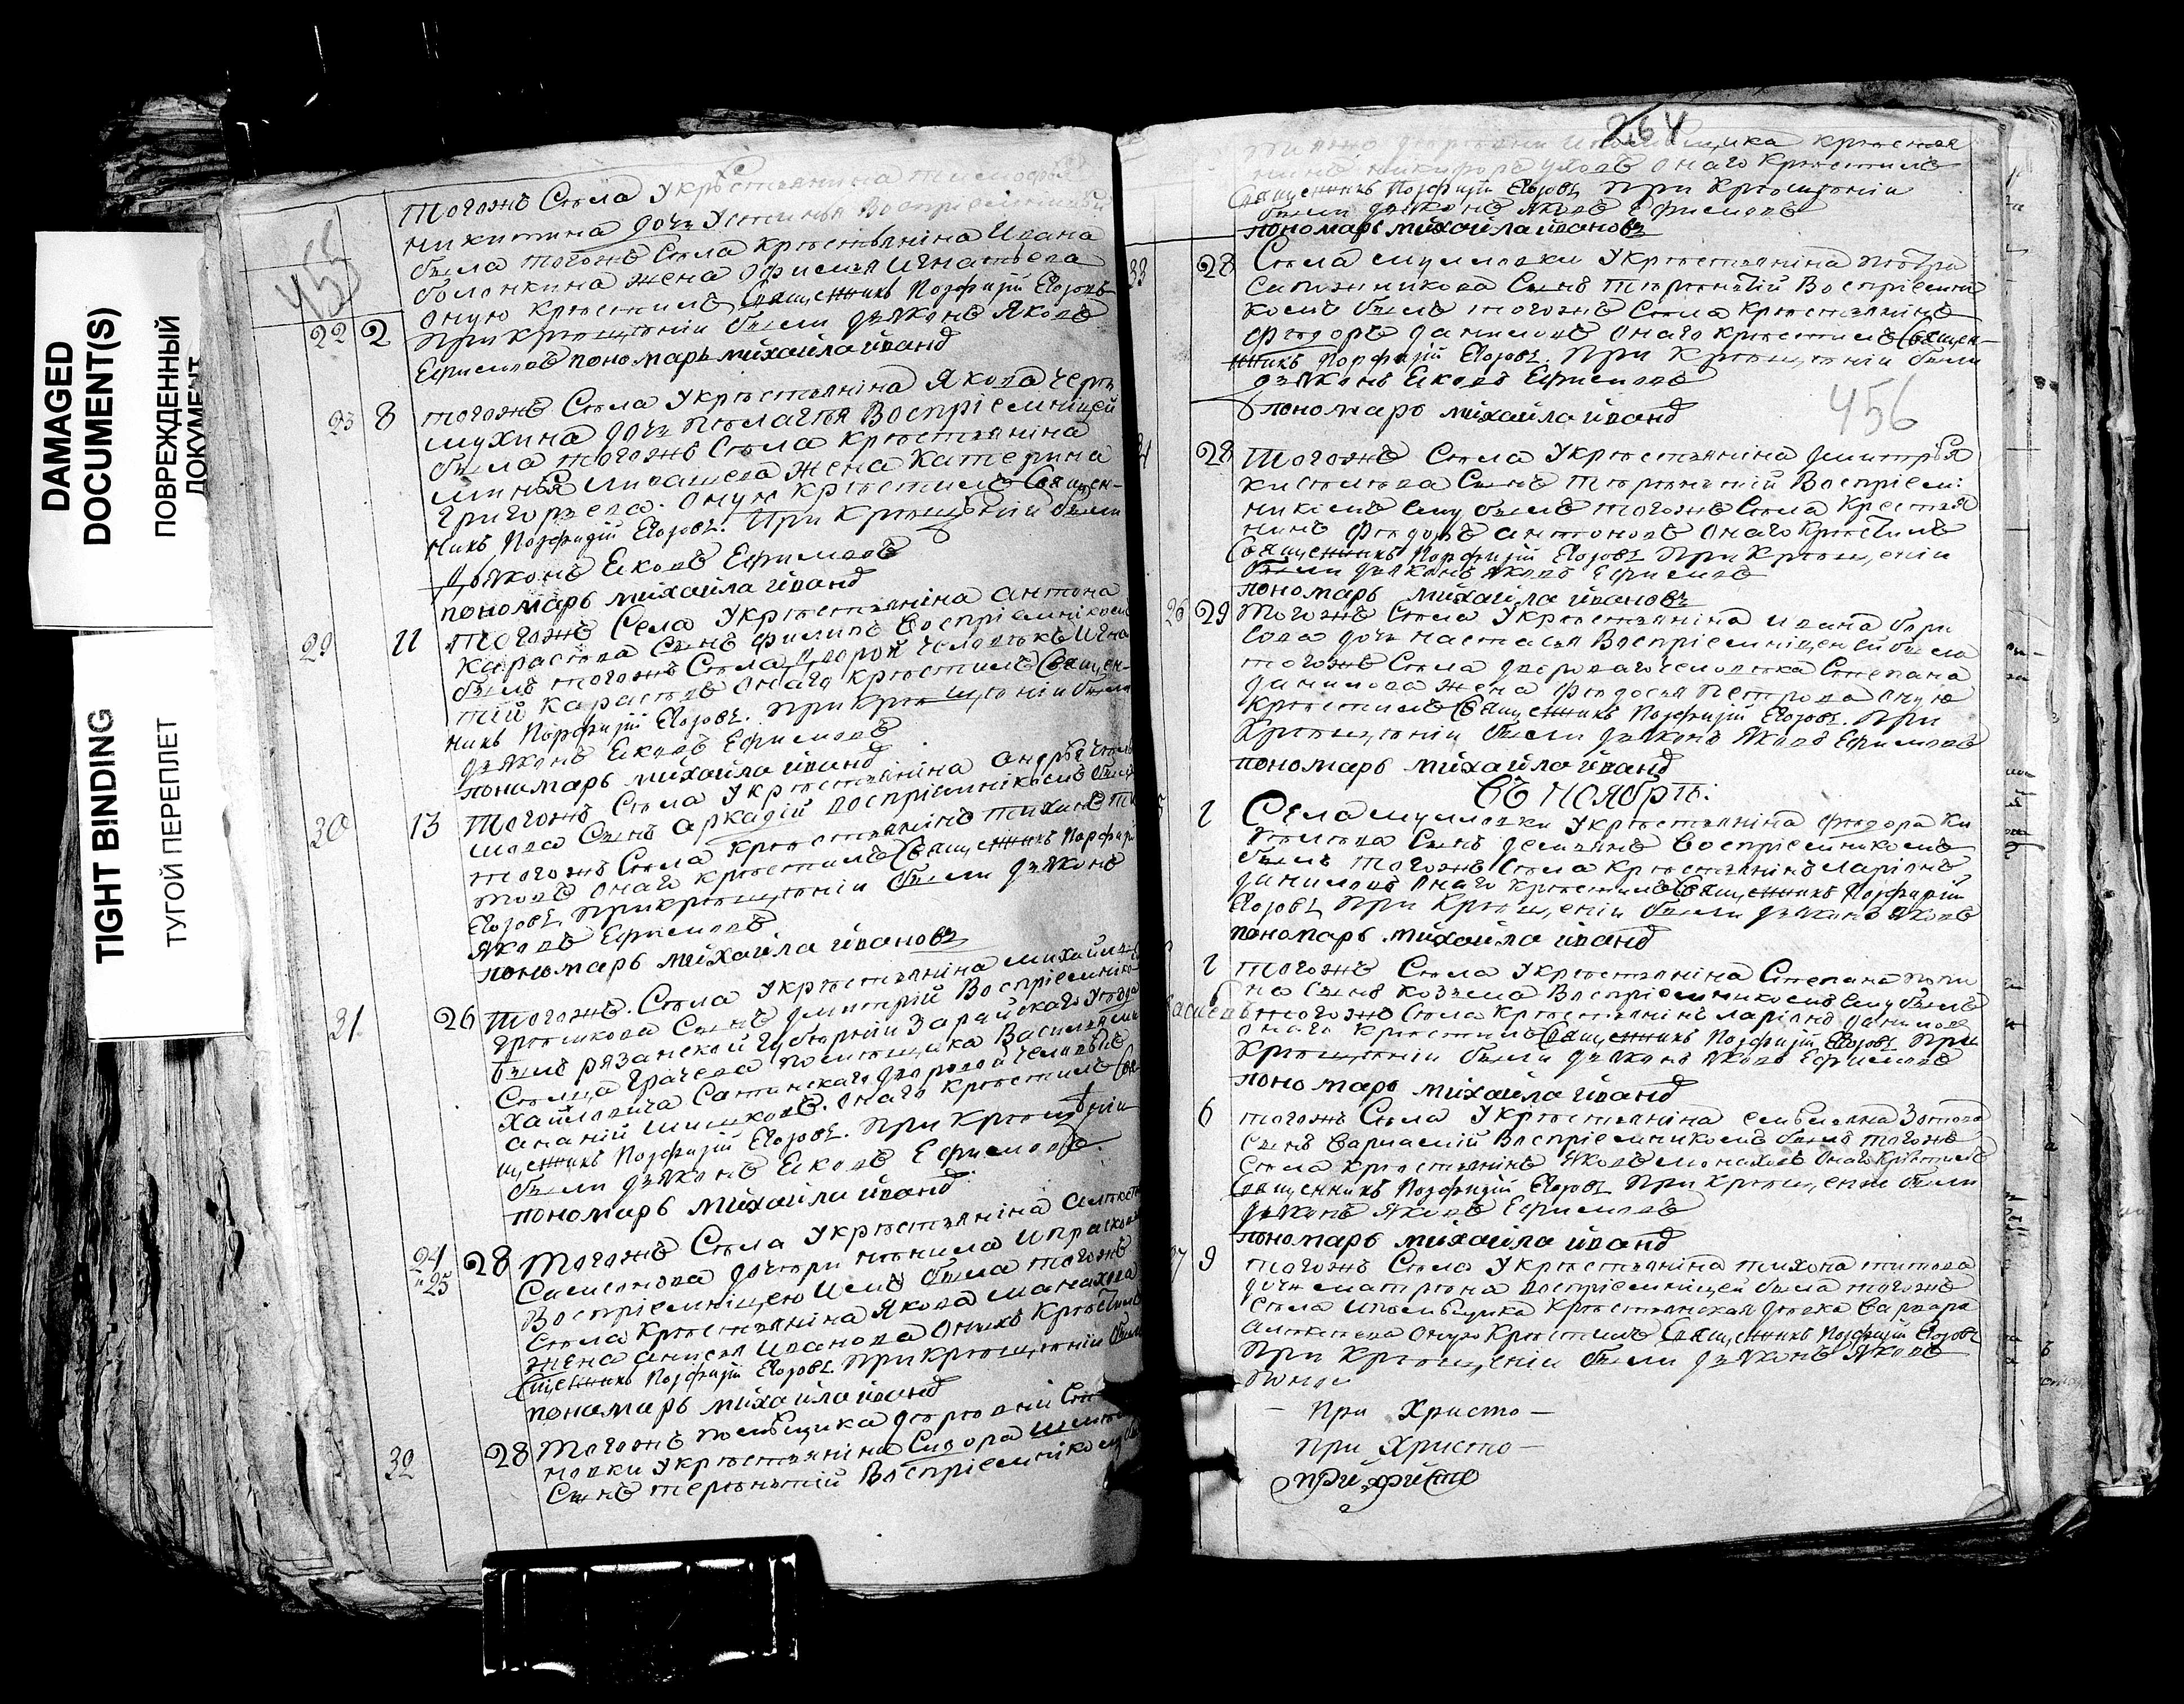 DAMAGED
DOCUMENT(S)
ПОВРЕЖДЕННЫЙ
ДОКУМЕНТ
TIGHT BINDING
ТУГОЙ ПЕРЕПЛЕТ
455
Тогожъ Села Укрестьянина тимофея
никитина дочь Устинья Восприемницей
была тогожъ Села крестьяніна Ивана
болонкина жена Офимья Игнатьева
оную крестилъ Священникъ Порфирій Егоровъ
22 2 При крещеніи были дьяконъ Яковъ
Ефимовъ пономарь михайла иванъ
23 8 тогожъ Села Укрестьяніна Якова Чере
мухина дочь Пелагея Восприемніцей
была тогожъ Села крестьяніна
жена Катерина
Григорьева. оную крестилъ Священ-
никъ Порфирій Егоровъ. При крещеніи были
дьяконъ Ековъ Ефимовъ
пономарь михайла иванъ
29 11 Тогожъ Села Укрестьяніна антона
карасева Сынъ филипъ Восприемнікомъ
былъ тогожъ Села дворой человекъ Игна
тій карасевъ онаго крестилъ Священ-
никъ Порфирій Егоровъ. При крещеніи были
дьяконъ Ековъ Ефимовъ
пономарь михайла иванъ
30 13 Тогожъ Села Укрестьяніна андрея
Сынъ аркадій восприемнікомъ былъ
тогожъ Села крестьянінъ тихинъ ти
товъ онаго крестилъ Священникъ Порфирі
Егоровъ При крещеніи были дьяконъ
Яковъ Ефимовъ
пономарь михайла ивановъ
31 26 Тогожъ Села Укрестьяніна михайла
Сынъ дмитрій Восприемніко
былъ рязанской губерніи Зарайскаго Уезда
Сельца Грачева Помещика Василья ми
хайловича Сатинскаго дворовой человекъ
ананій шишковъ. онаго крестилъ Свя
щенникъ Порфирій Егоровъ. При крещеніи
были дьяконъ Ековъ Ефимовъ
пономарь михайла иванъ
24 и 25 28 Тогожъ Села Укрестьяніна алексея
Симонова дочери ненила Ипрасковья
Восприемніцею Имъ была тогожъ
Села крестьяніна Якова манахова
жена анисья Иванова оныхъ крестилъ
Священникъ Порфирій Егоровъ При крещеніи были
пономарь михайла иванъ
32 28 Тогожъ помещика деревни Сте
новки Укрестьяніна Сидора
Сынъ терентій Восприемнікомъ
264
деревни крестья
нинъ никифоръ онаго крестилъ
Священникъ Порфирій Егоровъ При крещеніи
были дьяконъ Яковъ Ефимовъ
пономарь михайла ивановъ
33 28 Села мулловки Укрестьяніна петра
Сапожникова Сынъ терентій Восприемни
комъ былъ тогожъ Села крестьянінъ
федоръ даниловъ онаго крестилъ Священ-
никъ Порфирій Егоровъ. При крещеніи были
дьяконъ Ековъ Ефимовъ
456
пономарь михайла иванъ
28 Тогожъ Села Укрестьяніна дмитрея
киселева Сынъ терентій Восприем:
никомъ ему былъ тогожъ Села крестья
нинъ федоръ антоновъ онаго крестилъ
Священникъ Порфирій Егоровъ При крещеніи
были дьяконъ Яковъ Ефимовъ
пономарь михайла ивановъ
26 29 Тогожъ Села Укрестьяніна ивана бори
сова дочь настасья Восприемніцей ей была
тогожъ Села двороваго человека Степана
данилова жена федосья Петрова оную
крестилъ Священникъ Порфирій Егоровъ. При
крещеніи были дьяконъ Яковъ Ефимовъ
пономарь михайла иванъ
Въ Ноябре:
1 Села мулловки Укрестьяніна федора ки
селева Сынъ демьянъ Восприемникомъ
былъ тогожъ Села крестьянінъ ларіонъ
даниловъ онаго крестилъ Священникъ Порфирій
Егоровъ При крещеніи были дьяконъ Яковъ
пономарь михайла иванъ
1 тогожъ Села Укрестьяніна Степана
Сынъ козьма Восприемникомъ ему былъ
тогожъ Села крестьянінъ ларіонъ даниловъ
онаго крестилъ Священникъ Порфирій Егоровъ При
крещеніи были дьяконъ Яковъ Ефимовъ
пономарь михайла иванъ
6 тогожъ Села Укрестьяніна емельяна Зотова
Сынъ варламій Восприемникомъ былъ тогожъ
Села крестьянінъ Яковъ монаховъ онаго крестилъ
Священникъ Порфирій Егоровъ При крещеніи были
дьяконъ Яковъ Ефимовъ
пономарь михайла иванъ
27 9 тогожъ Села Укрестьяніна тихона титова
дочь матрена восприемніцей была тогожъ
Села Ипомещика крестьянская девка варвара
алексеева оную крестилъ Священникъ Порфирій Егоровъ
При крещеніи были дьяконъ Яковъ
— При Христо —
При Христо —